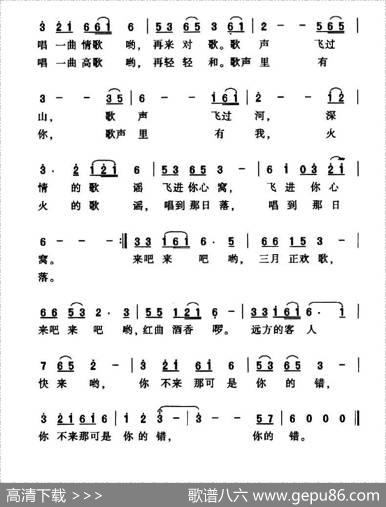 3 21 661 6 | 53 65 3·1 3 | 2 - - 565 |
唱 一曲 情歌 哟, 再来 对 歌。歌 声 飞过
唱 一曲 高歌 哟, 再轻 轻轻 和。歌声 里 有
3 - - 35 | 6 - - 161 | 2 - - 12 |
山, 歌 声 飞过 河, 深
你, 歌声 里 有 我, 火
3·2 121 6 | 53 65 3 - | 6 10 32·1 |
情 的 歌 谣 飞进 你心 窝, 飞 进 你 心
火 的 歌 谣, 唱到 那日 落, 唱 到 那 日
6 - - - :‖ 33 161 6· 5 | 66 15 3 - |
窝。 来吧 来 吧 哟, 三月 正欢 歌,
落。
66 53 2· 3 | 55 121 6 - | 33 161 6· 1 |
来吧 来 吧 哟, 红曲 酒香 啰。 远方 的客 人
7 65 2 - | 3 21 61 6 | 53 65 3 - |
快来 哟, 你 不来 那可 是 你 的 错,
3 21 61 6 | 1 2 3 - | 3 - - 57 | 6 0 0 0 ‖
你 不来 那可是 你的 错, 你的 错。
高清下载 >>>
歌谱八六 www.gepu86.com